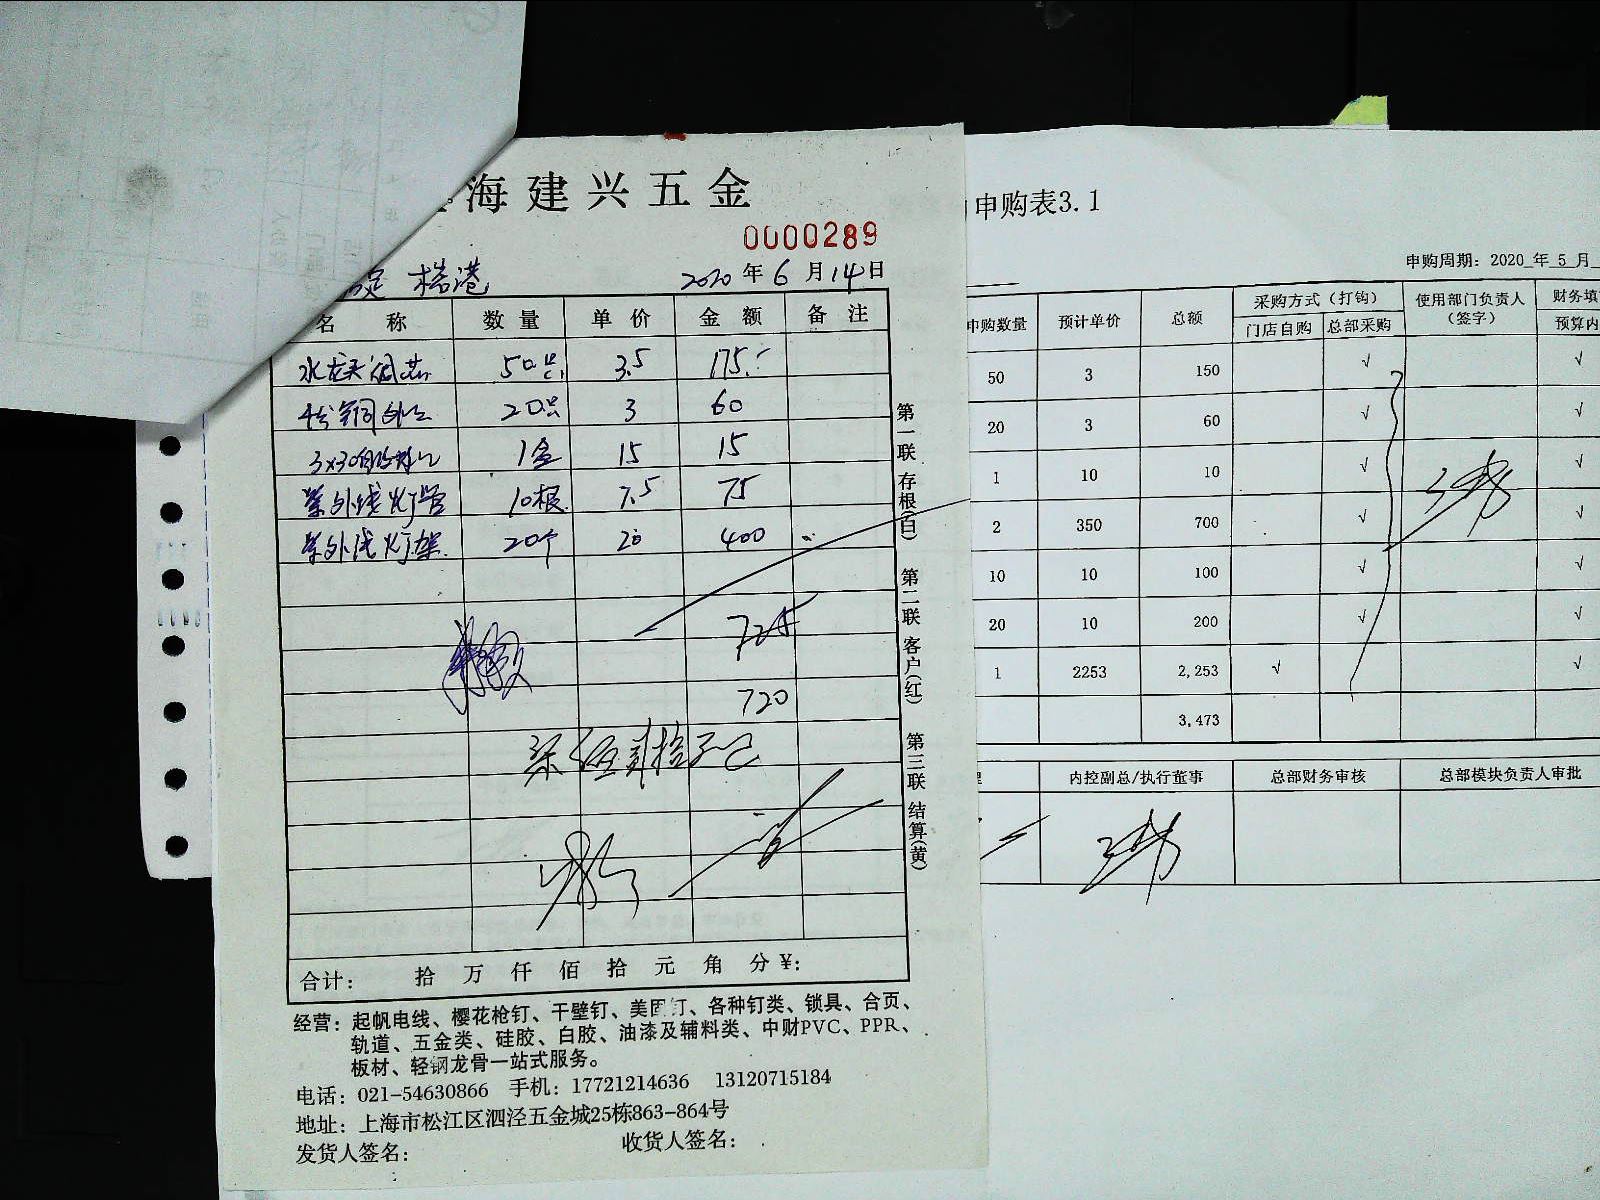 海建兴五金
0000289
桥港 2020年6月14日
名 称 数量 单价 金额 备注
水龙头阀芯 50只 3.5 175.-
4分铜外丝 20只 3 60
3x30 1盒 15 15
紫外线灯管 10根 7.5 75
紫外线灯架 20个 20 400
725
720
合计: 拾 万 仟 佰 拾 元 角 分 ¥:
第一联 存根(白) 第二联 客户(红) 第三联 结算(黄)
经营: 起帆电线、樱花枪钉、干壁钉、美固钉、各种钉类、锁具、合页、
轨道、五金类、硅胶、白胶、油漆及辅料类、中财PVC、PPR、
板材、轻钢龙骨一站式服务。
电话: 021-54630866 手机: 17721214636 13120715184
地址: 上海市松江区泗泾五金城25栋863-864号
发货人签名: 收货人签名:
申购表3.1
申购周期: 2020 年 5 月
申购数量 预计单价 总额 采购方式(打钩) 使用部门负责人(签字)
门店自购 总部采购 预算内
50 3 150 √ √
20 3 60 √ √
1 10 10 √ √
2 350 700 √ √
10 10 100 √ √
20 10 200 √ √
1 2253 2,253 √ √
3,473
内控副总/执行董事 总部财务审核 总部模块负责人审批